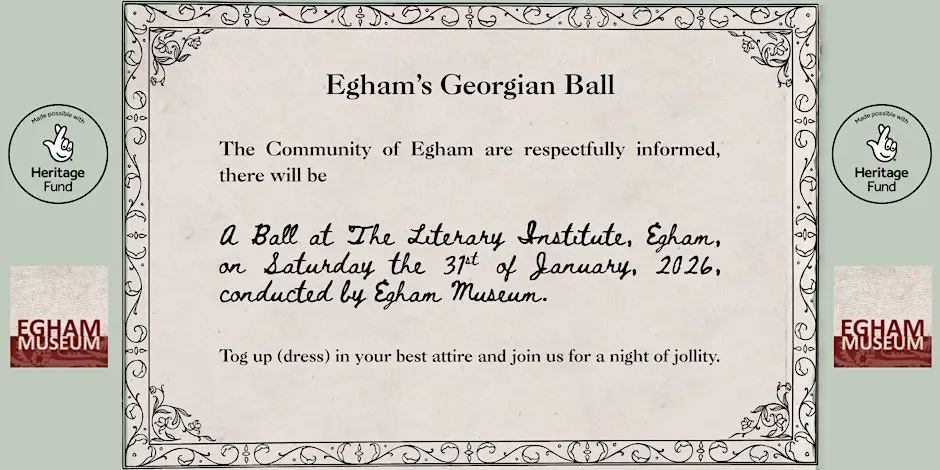 Egham's Georgian Ball
The Community of Egham are respectfully informed,
there will be
A Ball at The Literary Institute, Egham,
on Saturday the 31st of January, 2026,
conducted by Egham Museum.
Tog up (dress) in your best attire and join us for a night of jollity.
Made possible with
Heritage
Fund
EGHAM
MUSEUM
Made possible with
Heritage
Fund
EGHAM
MUSEUM